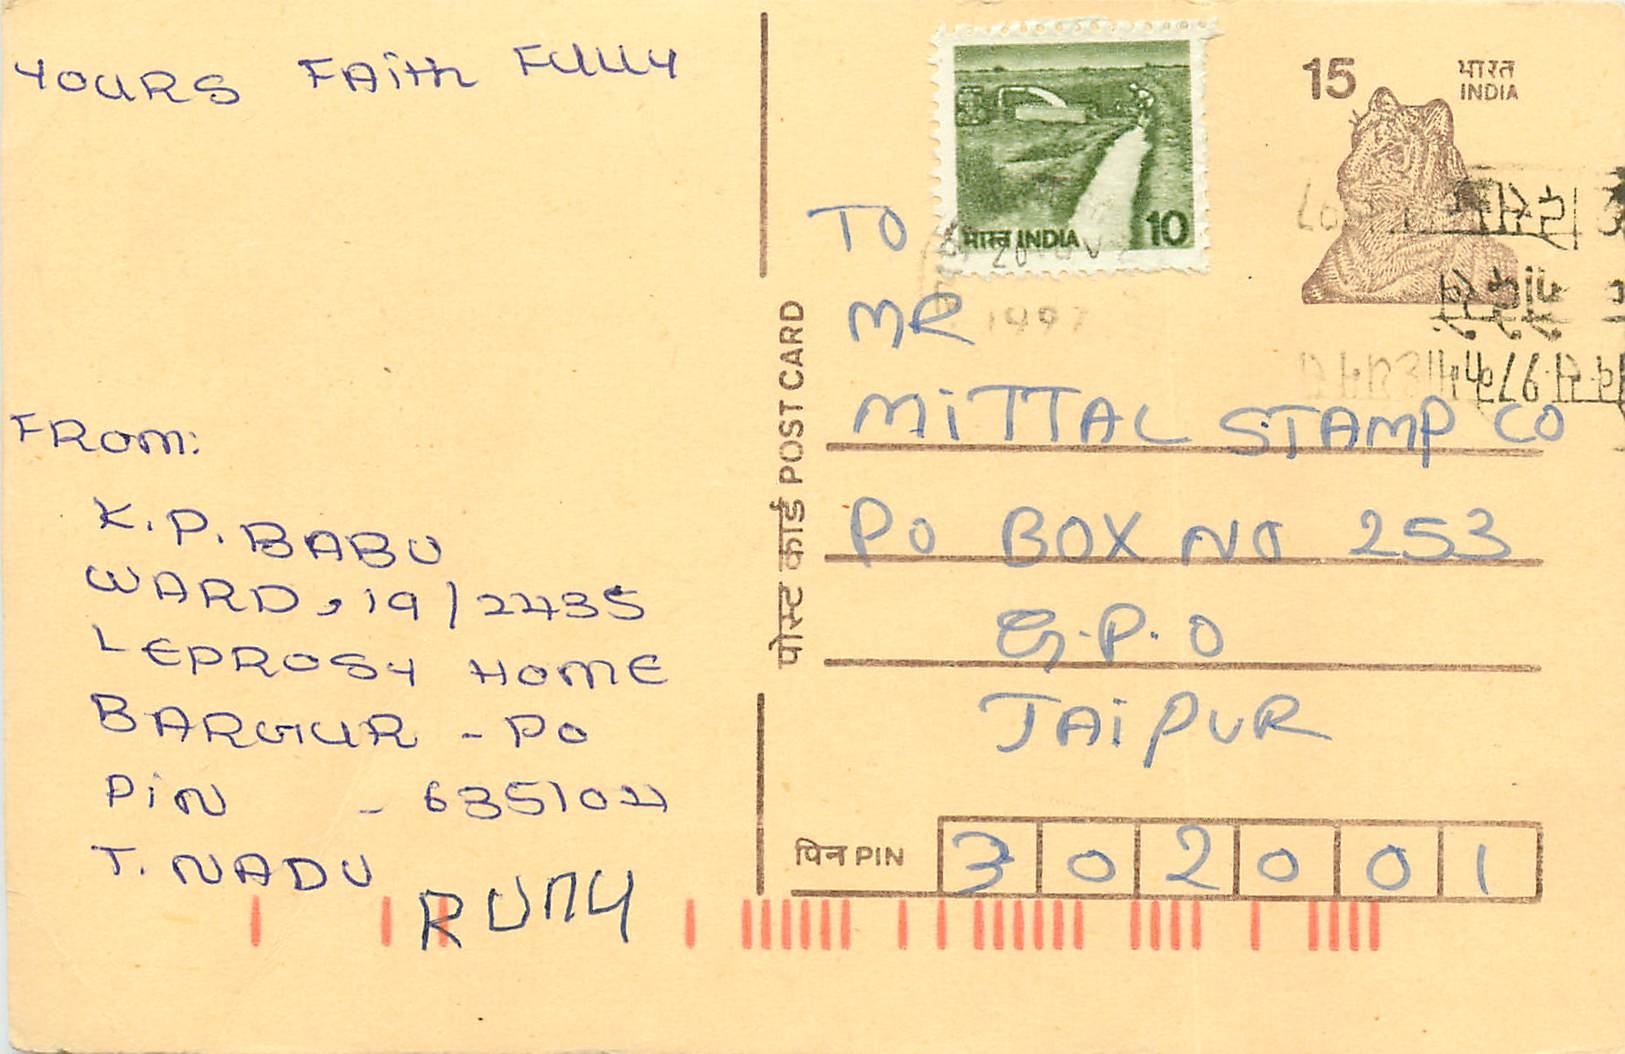 YOURS FAith FULLY
FROM:
K. P. BABU
WARD, 19/2435
LEPROSY HOME
BARGUR - PO
PiN - 635104
T. NADU
RUMY
पोस्ट कार्ड POST CARD
भारत INDIA 10
15
भारत
INDIA
1997
TO
MR
MiTTAL STAMP CO
PO BOX NO 253
G.P.O
JAiPUR
पिन PIN 302001